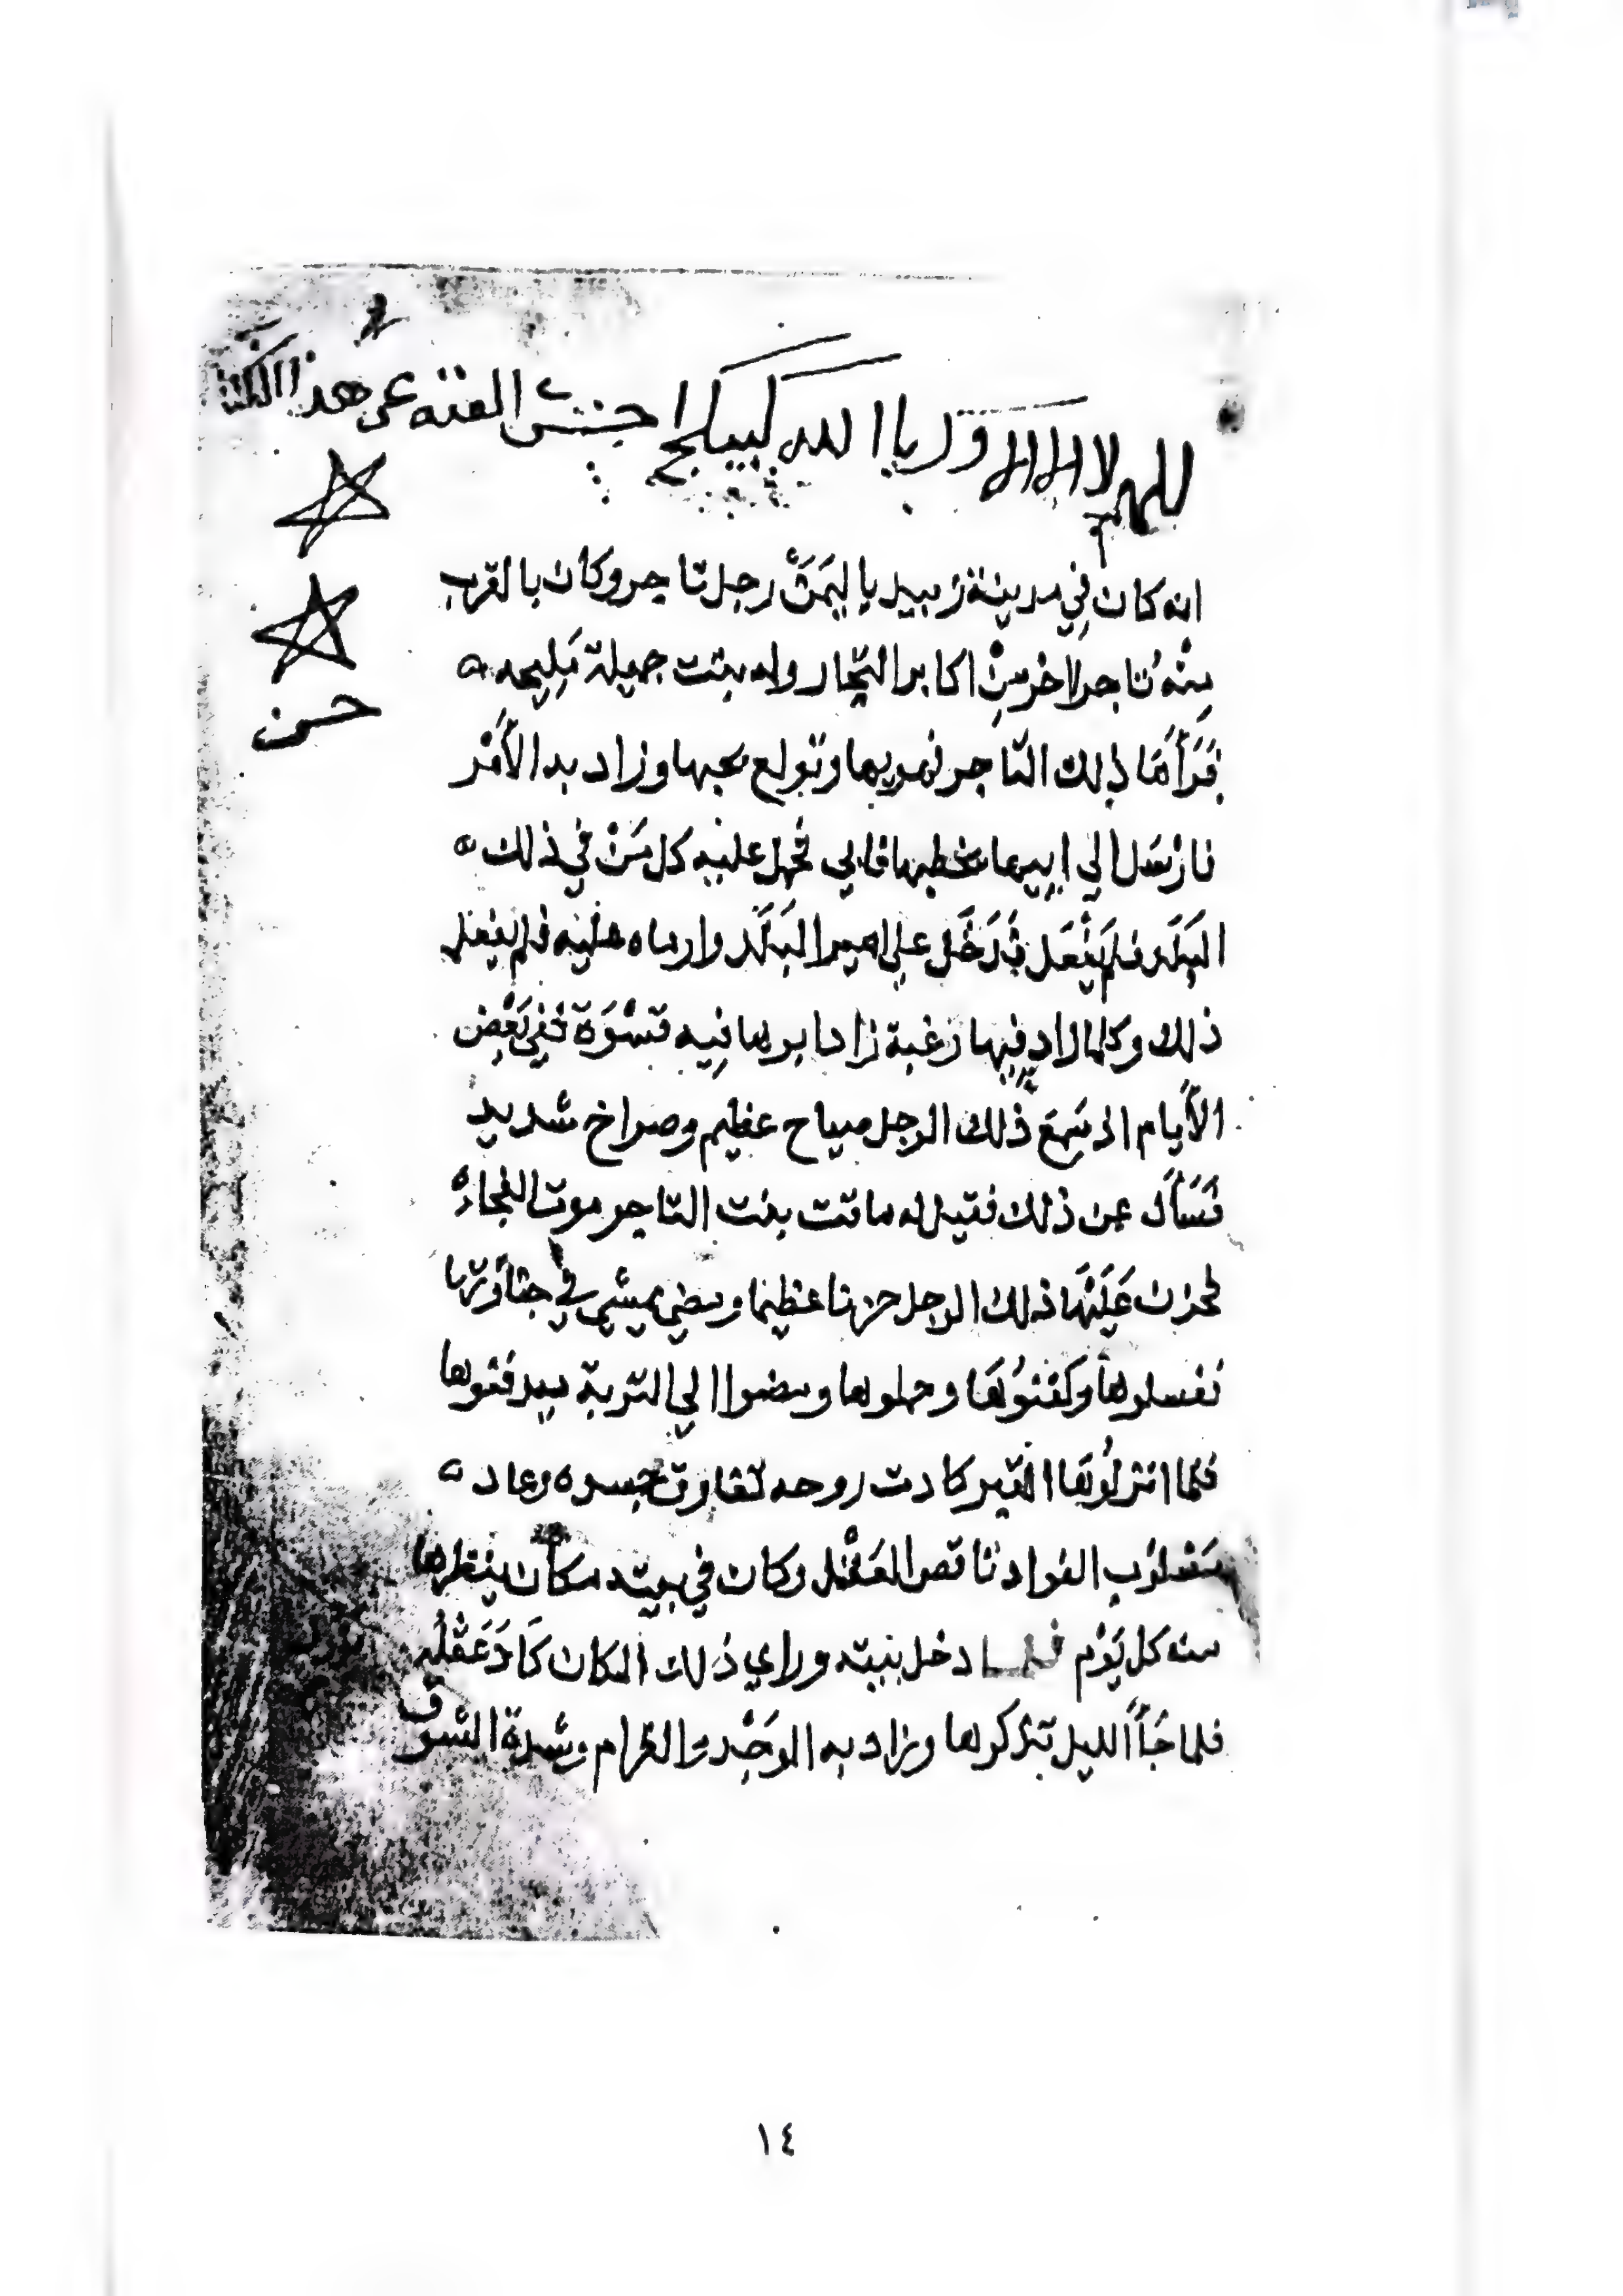 اللهم لا اله الا الله ور يا الله كبيكج احبس العثه عن هذا الكتاب
حسن
انه كان فِي مدينة زبيد باليَمَنْ رجل تاجر وكان بالقرب
مِنْهُ تاجر لاخر مِنْ اكابر التجار وله بنت جميلة مَليحه
فَرَأهَا ذلك التاجر فهويها وتولع بحبها وزاد بد الأَمْر
فارْسَل الي ابيها يخطبها فابي فحمل عليه كل مَنْ في ذلك
البَلَد فلم يَفْعَل فدَخَل علي امير البَلَد وارماه عليه فلم يفعل
ذلك وكلما زاد فِيها رغبة زاد ابوها فِيه قسْوَة ففي بَعْض
الأَيام اذ سَمِعَ ذلك الرجل صياح عظيم وصراخ شديد
فسَأَل عن ذلك فقيل له ماتت بنت التاجر موت الفجاءه
فحزن عَلَيْهَا ذلك الرجل حزنا عظيما ومضي يمشي في جنازتها
فغسلوها وكفنوُهَا وحملوها ومضوا الي التربة يدفنوها
فلما انزلُوهَا القبر كادت روحه تفارق جسده وعاد
مَسْلُوب الفواد ناقص العَقْل وكان في بيته مكان ينظرها
منه كل يَوْم فلما دخل بيته وراي ذلك المكان كَادَ عَقْلُه
فلما جَأَ الليل تذكرها وزاد به الوَجْد والغرام وشدة الشوق
١٤